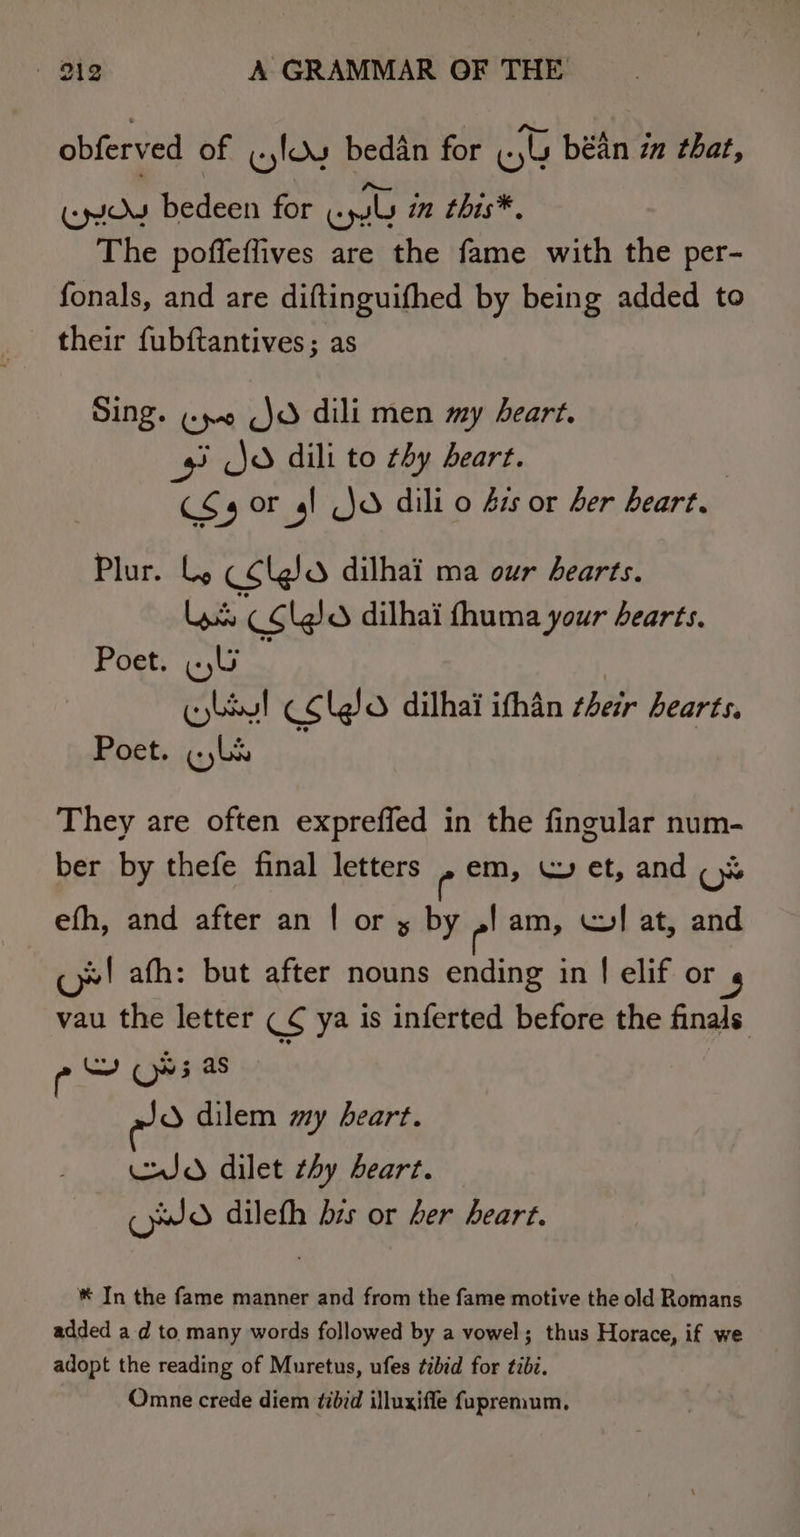 212 A GRAMMAR OF THE
obſerved of بدان bedân for بآن bëân in that,
بدين bedeen for بآين in this*.
The poſſeſſives are the ſame with the per-
ſonals, and are diſtinguiſhed by being added to
their ſubſtantives; as
Sing. دل من dili men my heart.
دل تو dili to thy heart.
دل او or وي dili o his or her heart.
Plur. دلهاي ما dilhaï ma our hearts.
دلهاي شما dilhaï ſhuma your hearts.
Poet. تان
دلهاي ايشان dilhaï iſhân their hearts.
Poet. شان
They are often expreſſed in the ſingular num-
ber by theſe final letters م em, ت et, and ش
eſh, and after an ا or ه by ام am, ات at, and
اش aſh: but after nouns ending in ا elif or و
vau the letter ي ya is inſerted before the finals
م ت ش; as
دلم dilem my heart.
دلت dilet thy heart.
دلش dileſh his or her heart.
* In the ſame manner and from the ſame motive the old Romans
added a d to many words followed by a vowel; thus Horace, if we
adopt the reading of Muretus, uſes tibid for tibi.
Omne crede diem tibid illuxiſſe ſupremum.